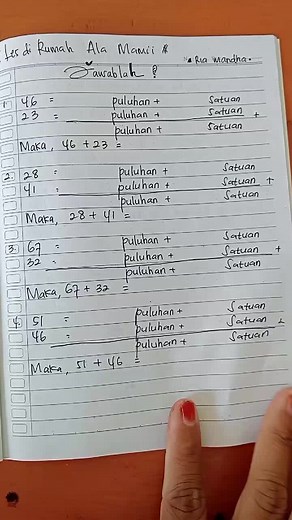 Les di Rumah Ala Mamii
Ria Mandha.
Jawablah ?
1. 46 = puluhan + satuan
23 = puluhan + satuan +
puluhan + satuan
Maka, 46 + 23 =
2. 28 = puluhan + satuan
41 = puluhan + satuan +
puluhan + satuan
Maka, 28 + 41 =
3. 67 = puluhan + satuan
32 = puluhan + satuan +
puluhan + satuan
Maka, 67 + 32 =
4. 51 = puluhan + satuan
46 = puluhan + satuan +
puluhan + satuan
Maka, 51 + 46 =